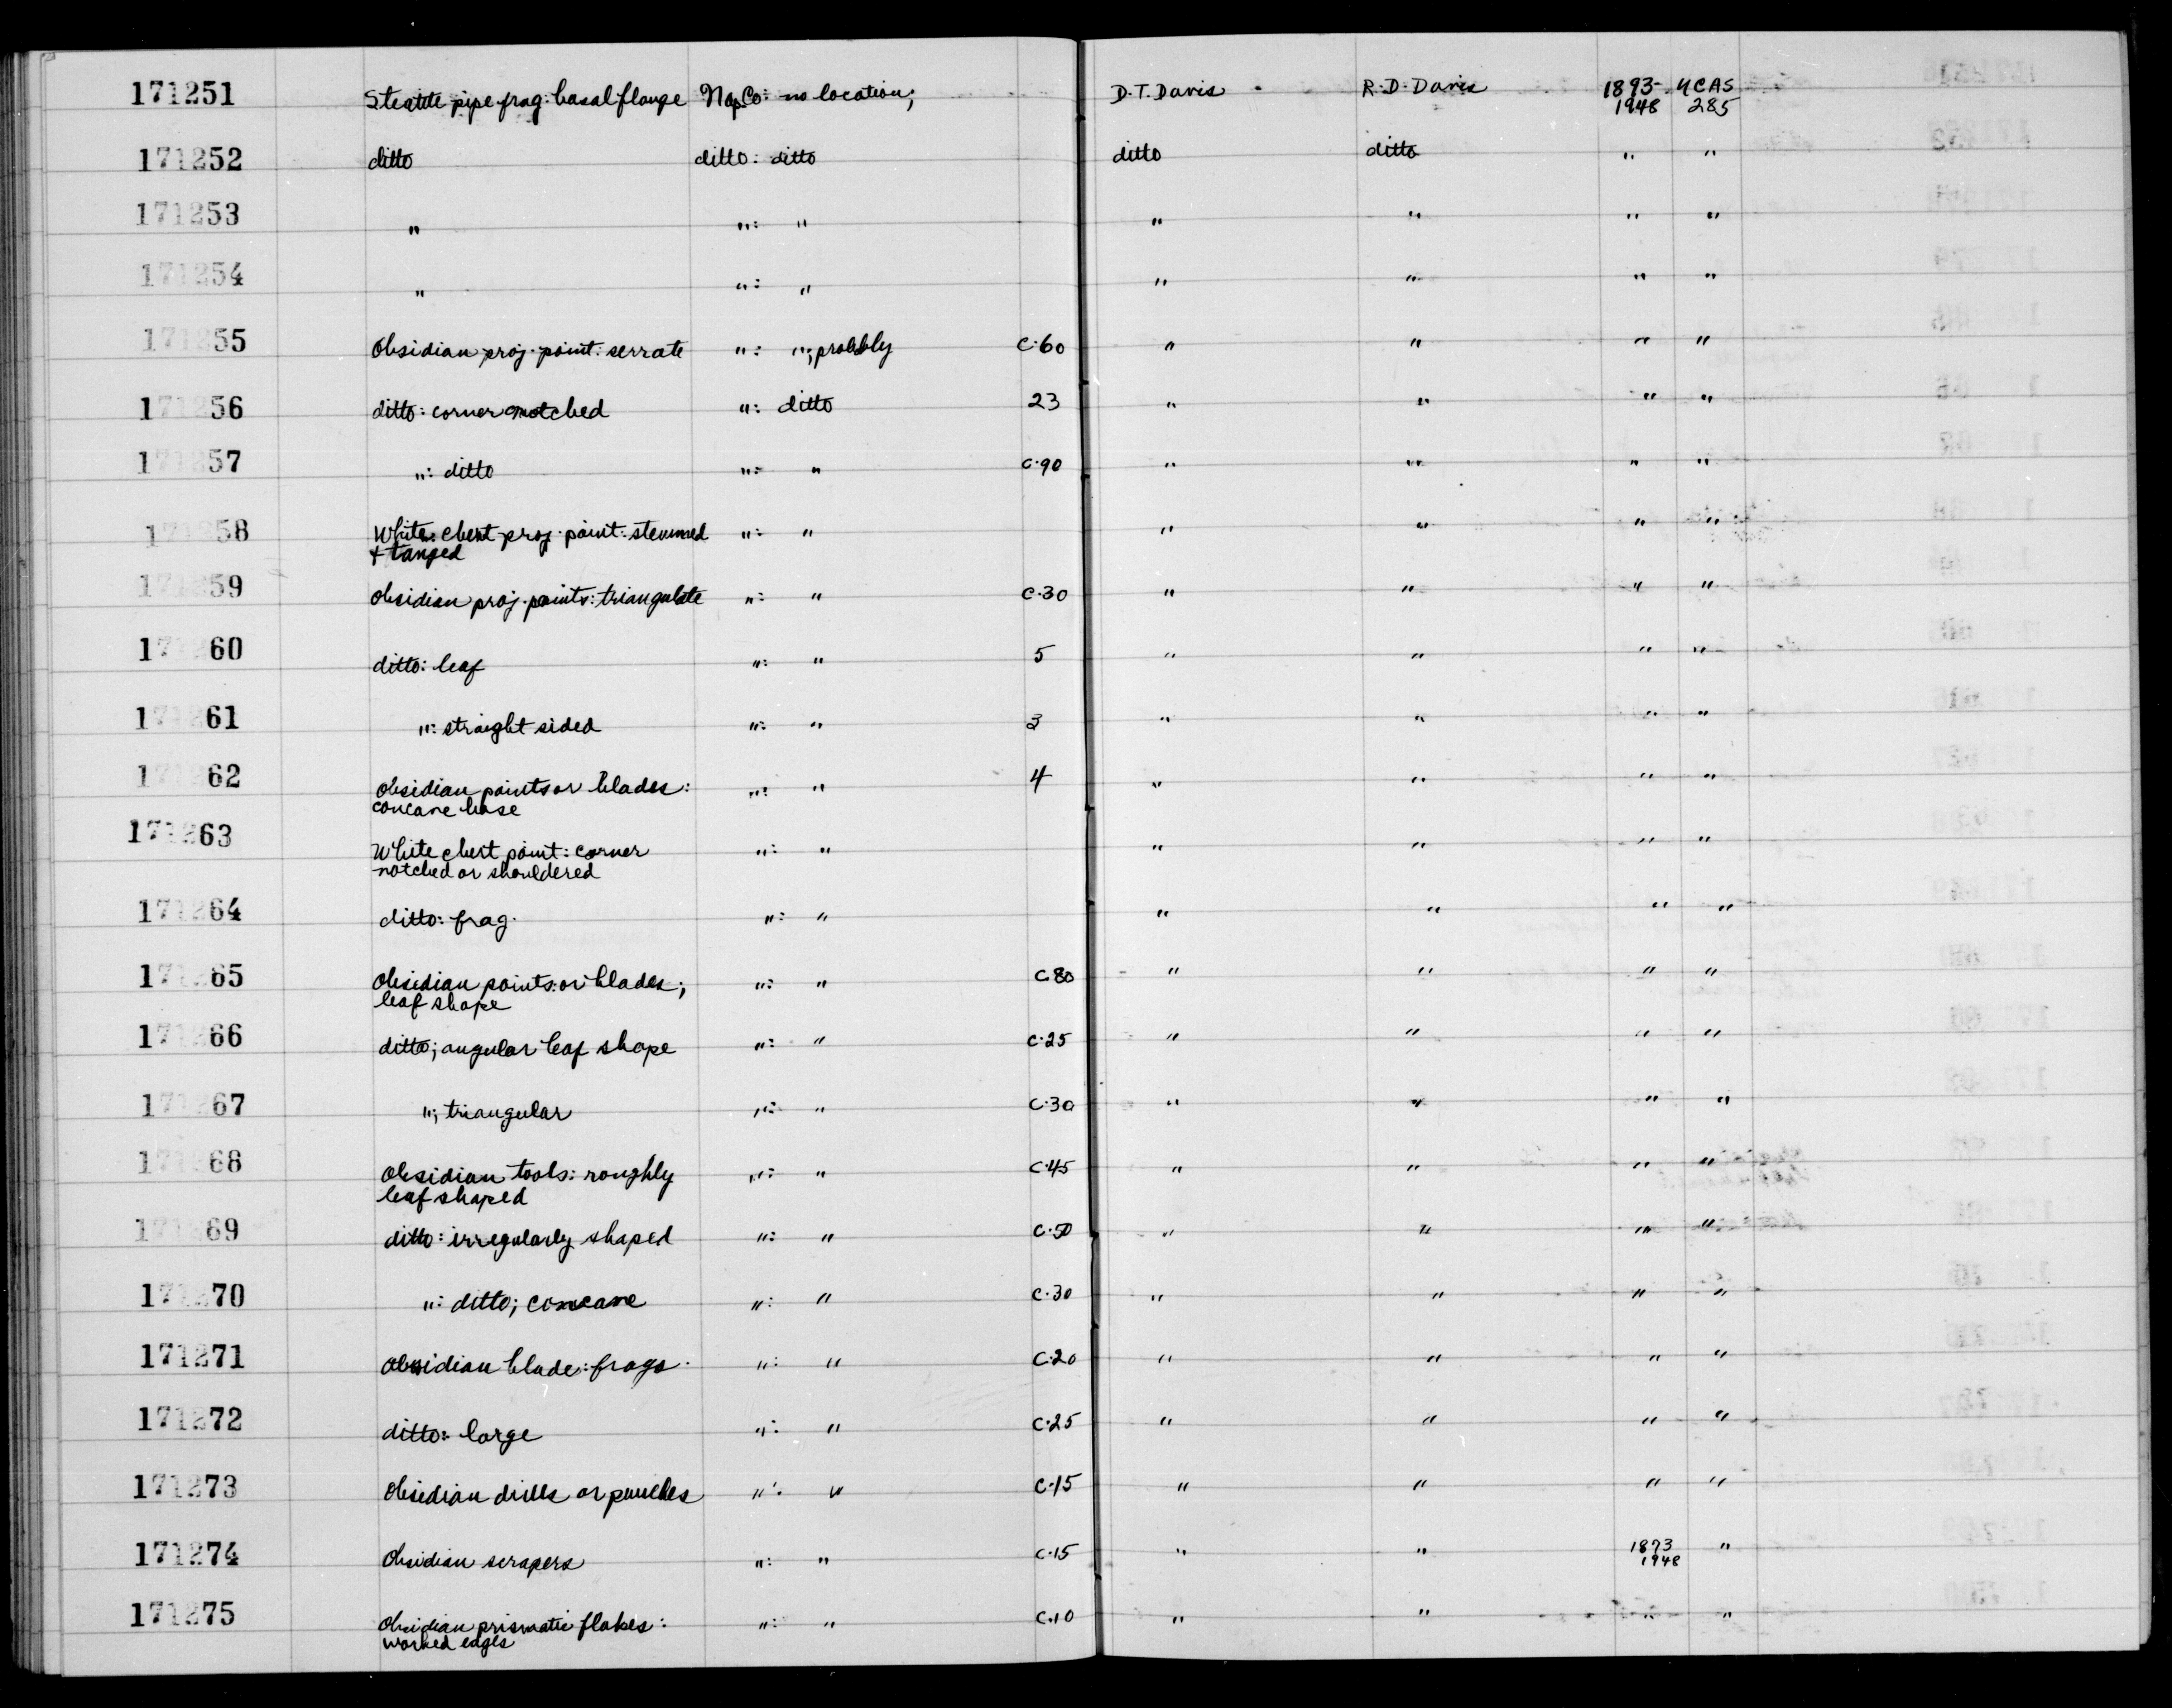 171251 Steatite pipe frag: basal flange Nap Co: no location; D.T. Davis R.D. Davis 1893- UCAS
1948 285
171252 ditto ditto: ditto ditto ditto " "
171253 " ": " " " " "
171254 " ": " " " " "
171255 Obsidian proj. point: serrate ": "; probably C.60 " " " "
171256 ditto: corner notched ": ditto 23 " " " "
171257 ": ditto ": " C.90 " " " "
171258 White chert proj. point: stemmed ": " " " " "
+ tanged
171259 Obsidian proj. points: triangulate ": " C.30 " " " "
171260 ditto: leaf ": " 5 " " " "
171261 ": straight sided ": " 3 " " " "
171262 Obsidian points or blades: ": " 4 " " " "
concave base
171263 White chert point: corner ": " " " " "
notched or shouldered
171264 ditto: frag. ": " " " " "
171265 Obsidian points or blades; ": " C.80 " " " "
leaf shape
171266 ditto; angular leaf shape ": " C.25 " " " "
171267 "; triangular ": " C.30 " " " "
171268 Obsidian tools: roughly ": " C.45 " " " "
leaf shaped
171269 ditto: irregularly shaped ": " C.50 " " " "
171270 ": ditto; concave ": " C.30 " " " "
171271 Obsidian blade: frags. ": " C.20 " " " "
171272 ditto: large ": " C.25 " " " "
171273 Obsidian drills or punches ": " C.15 " " " "
171274 Obsidian scrapers ": " C.15 " " 1893 "
1948
171275 Obsidian prismatic flakes: ": " C.10 " " " "
worked edges